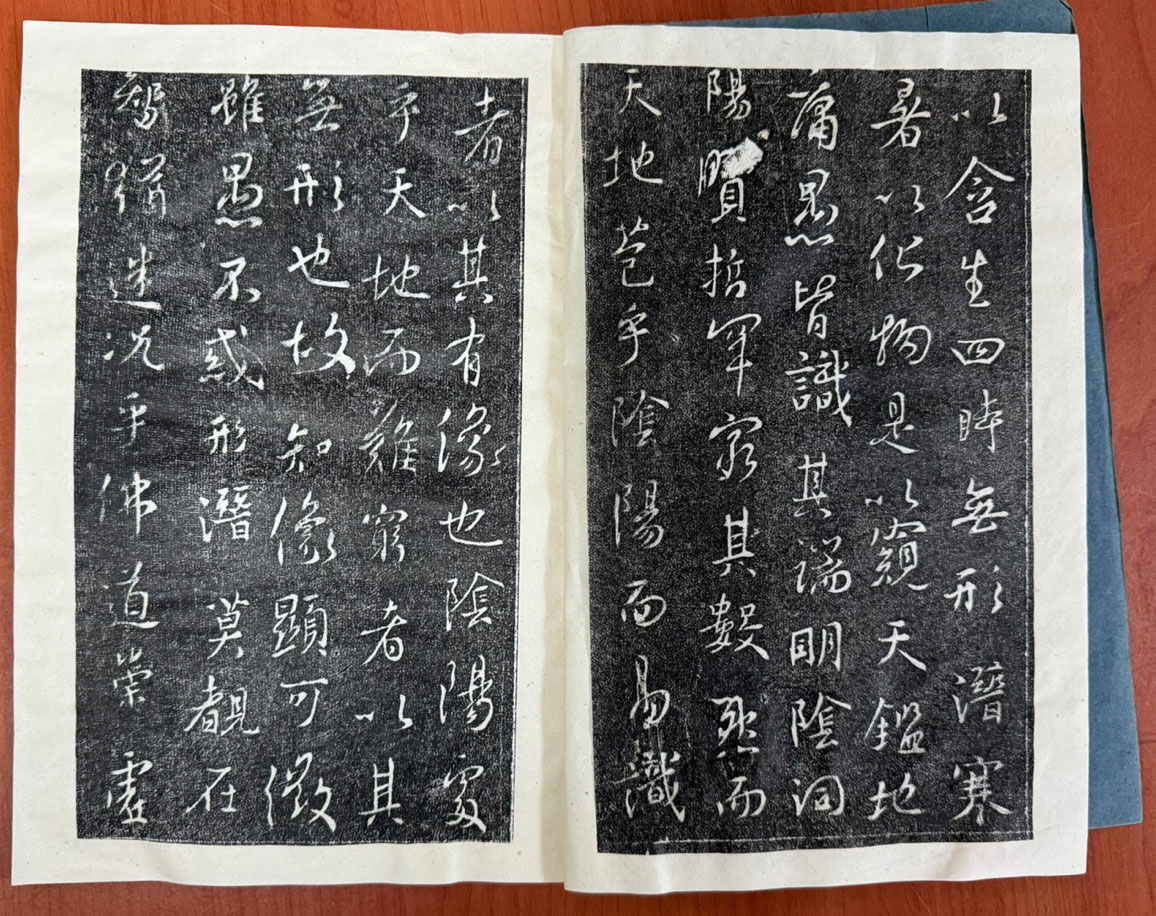 以含生四時無形潛寒
暑以化物是以窺天鑑地
庸愚皆識其端明陰洞
陽賢哲罕窮其數然而
天地苞乎陰陽而易識
者以其有像也陰陽處
乎天地而難窮者以其
無形也故知像顯可徵
雖愚不惑形潛莫覩在
智猶迷况乎佛道崇虛